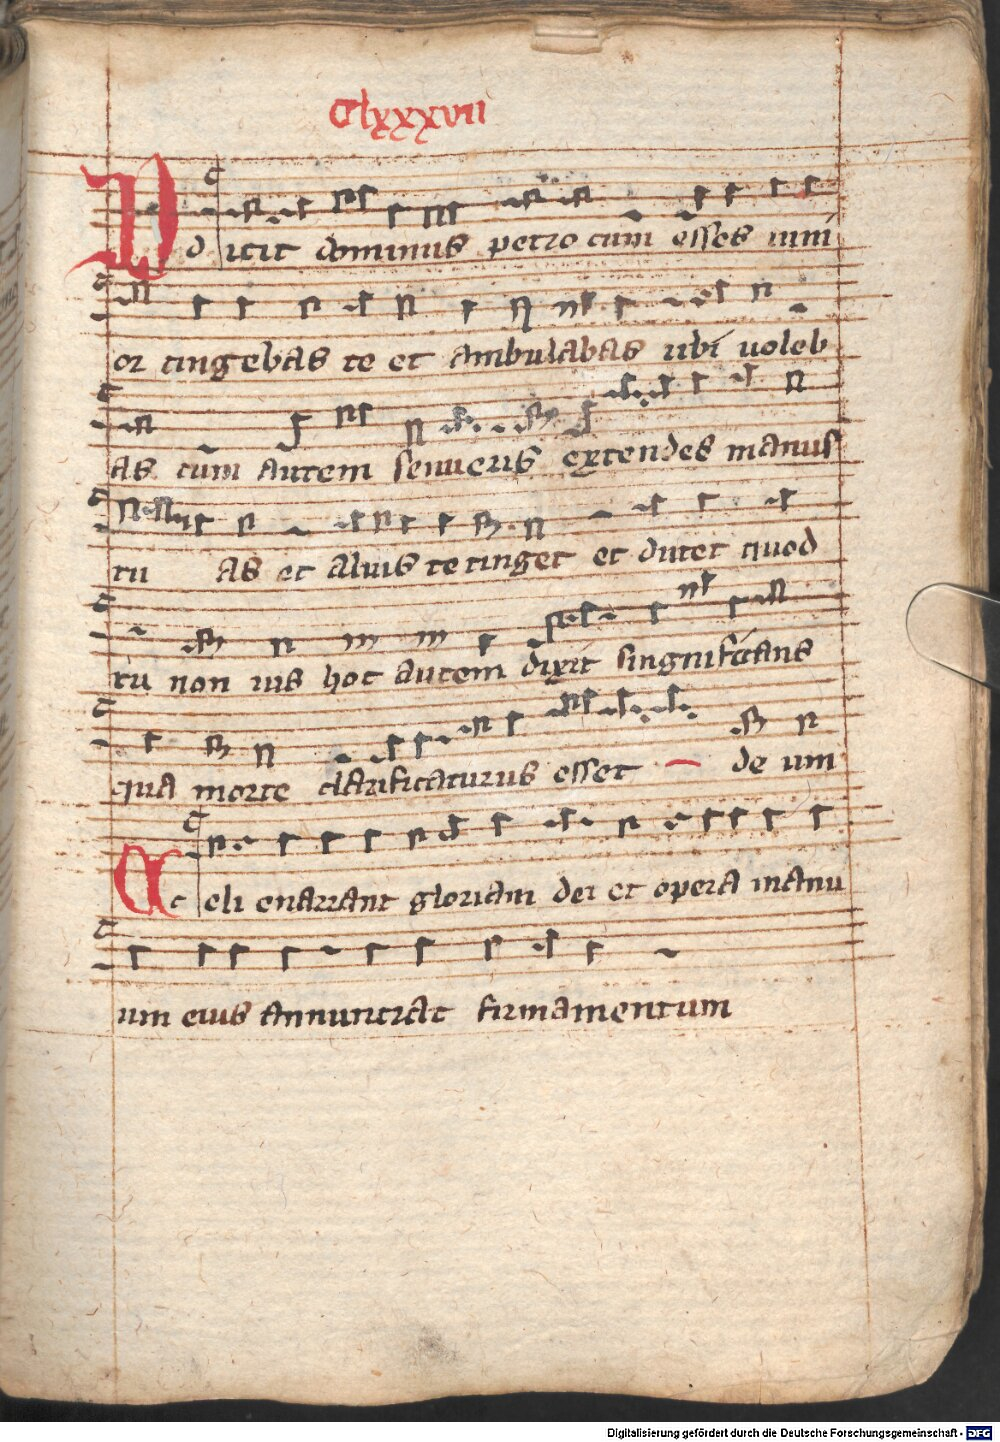 Clxxxvii
D d icit dominus petro cum esses iuni
or cingebas te et ambulabas ubi uoleb
as cum autem senueris extendes manus
tu as et alius te cinget et ducet quod
tu non uis hoc autem dixit singnificans
qua morte clarificaturus esset de um
C c eli enarrant gloriam dei et opera manu
um eius annunciat firmamentum
Digitalisierung gefördert durch die Deutsche Forschungsgemeinschaft - DFG